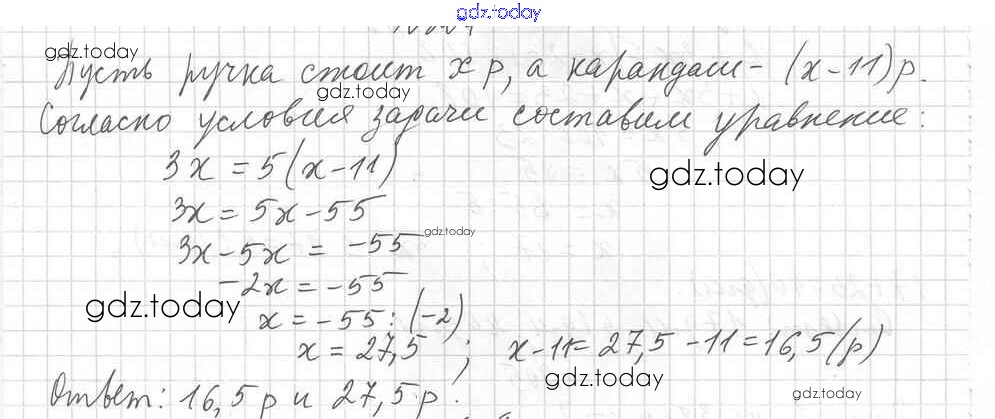 gdz.today
gdz.today
Пусть ручка стоит x р, а карандаш - (x-11) р.
gdz.today
Согласно условия задачи составим уравнение:
3x = 5(x-11)
gdz.today
3x = 5x - 55
gdz.today
3x - 5x = -55
-2x = -55
gdz.today
x = -55 : (-2)
x = 27,5 ; x - 11 = 27,5 - 11 = 16,5 (р)
gdz.today
Ответ: 16,5 р и 27,5 р.
gdz.today